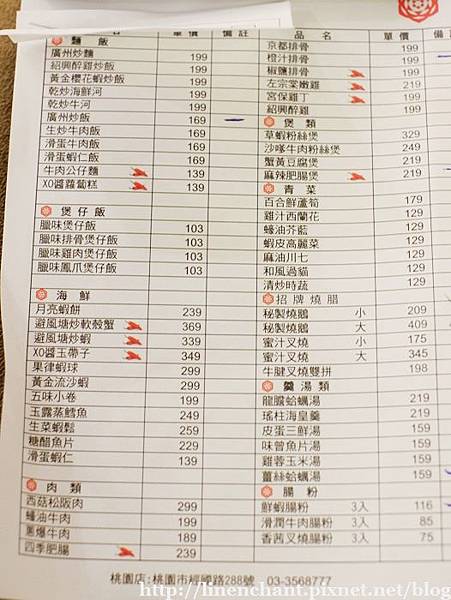 名 單價 備註
麵飯
廣州炒麵 199
紹興醉雞炒飯 199
黃金櫻花蝦炒飯 199
乾炒海鮮河 199
乾炒牛河 199
廣州炒飯 169
生炒牛肉飯 169
滑蛋牛肉飯 169
滑蛋蝦仁飯 169
牛肉公仔麵 139
XO醬蘿蔔糕 139
煲仔飯
臘味煲仔飯 103
臘味排骨煲仔飯 103
臘味雞肉煲仔飯 103
臘味鳳爪煲仔飯 103
海鮮
月亮蝦餅 239
避風塘炒軟殼蟹 369
避風塘炒蝦 339
XO醬玉帶子 349
果律蝦球 299
黃金流沙蝦 299
五味小卷 199
玉露蒸鱈魚 249
生菜蝦鬆 259
糖醋魚片 229
滑蛋蝦仁 139
肉類
西菇松阪肉 299
蠔油牛肉 199
蔥爆牛肉 189
四季肥腸 239
品名 單價 備
京都排骨 199
橙汁排骨 199
椒鹽排骨 199
左宗棠嫩雞 219
宮保雞丁 199
紹興醉雞 199
煲類
草蝦粉絲煲 329
沙嗲牛肉粉絲煲 249
蟹黃豆腐煲 219
麻辣肥腸煲 219
青菜
百合鮮蘆筍 179
雞汁西蘭花 129
蠔油芥藍 129
蝦皮高麗菜 129
麻油川七 129
和風過貓 129
清炒時蔬 129
招牌燒腊
秘製燒鵝 小 209
秘製燒鵝 大 409
蜜汁叉燒 小 175
蜜汁叉燒 大 345
牛腱叉燒雙拼 198
羹湯類
龍膽蛤蠣湯 159
瑤柱海皇羹 219
皮蛋三鮮湯 159
味曾魚片湯 159
雞蓉玉米湯 159
薑絲蛤蠣湯 159
腸粉
鮮蝦腸粉 3入 116
滑潤牛肉腸粉 3入 85
香茜叉燒腸粉 3入 75
桃園店:桃園市經國路288號 03-3568777
http://linenchant.pixnet.net/blog